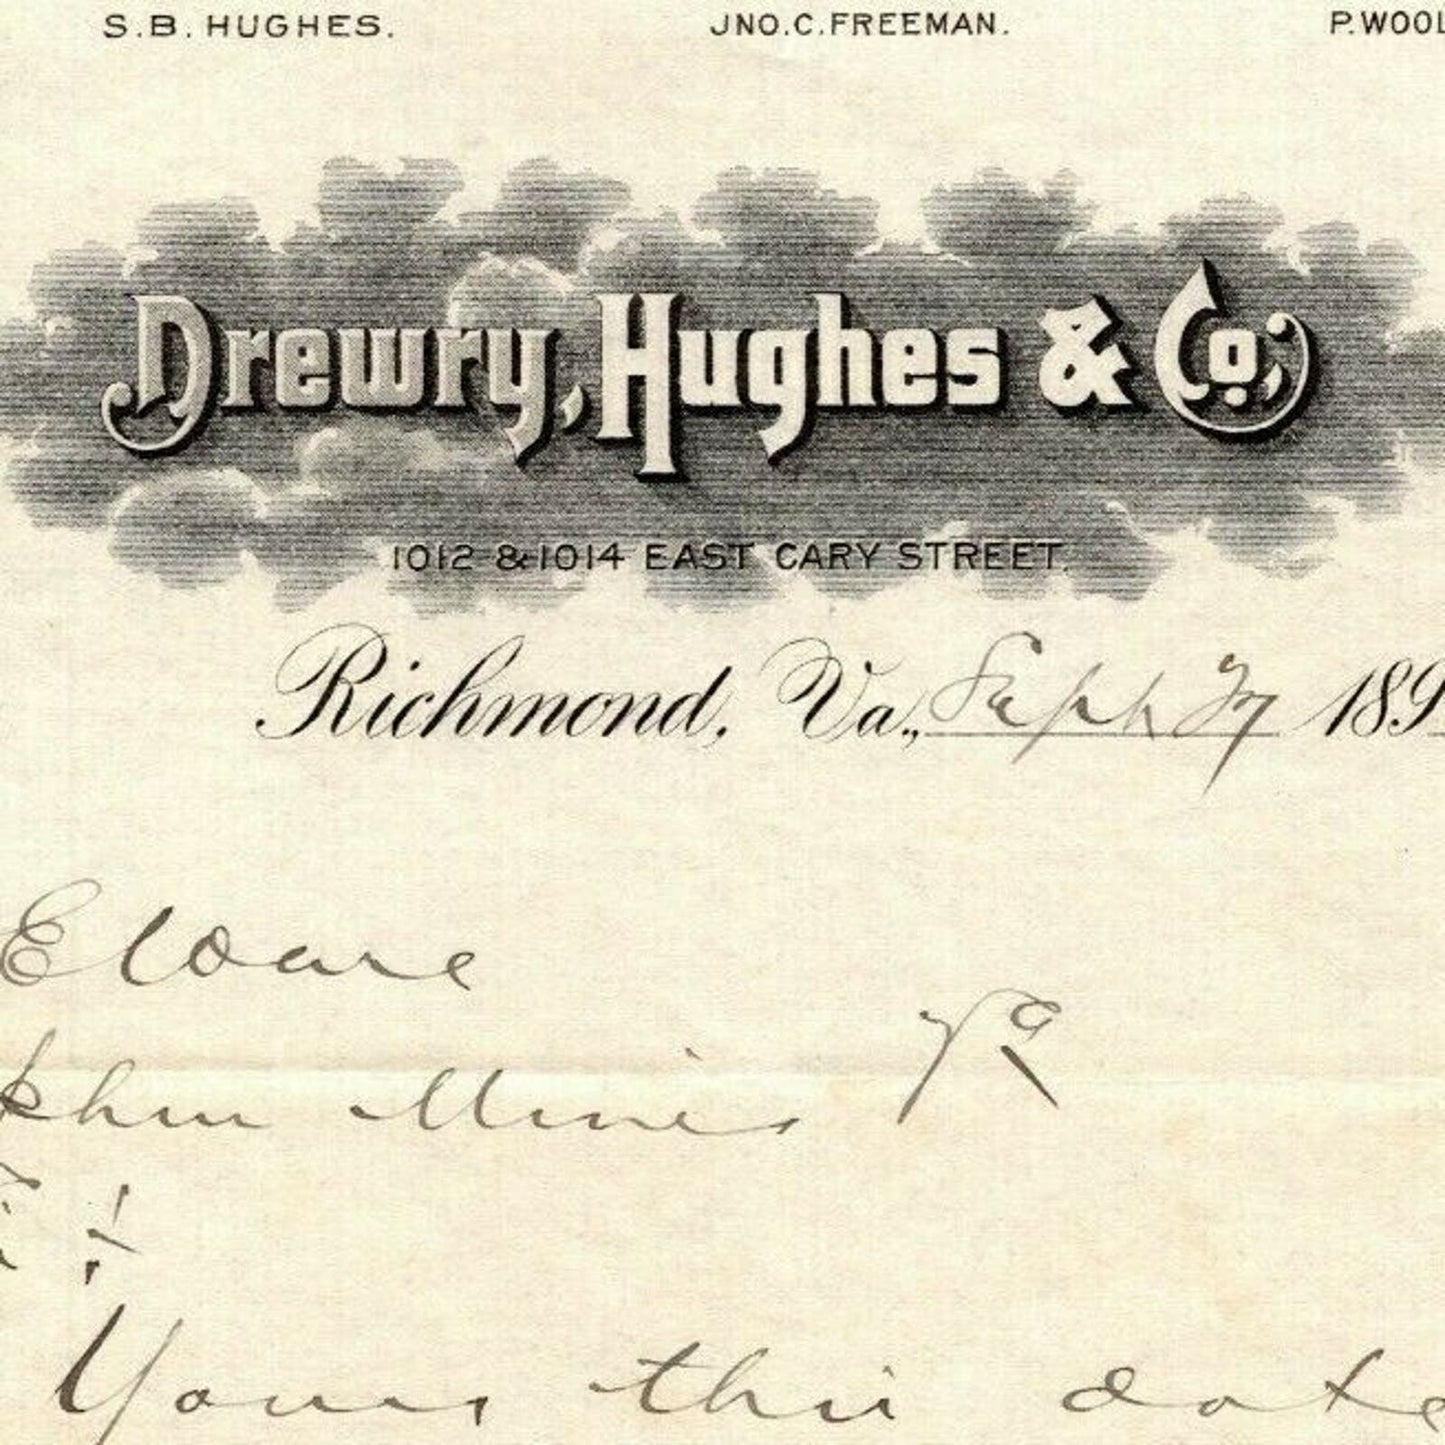 S.B. HUGHES. JNO.C.FREEMAN. P.WOOL
Drewry, Hughes & Co.,
1012 & 1014 EAST CARY STREET.
Richmond, Va., Sept 27 189
Yours this date